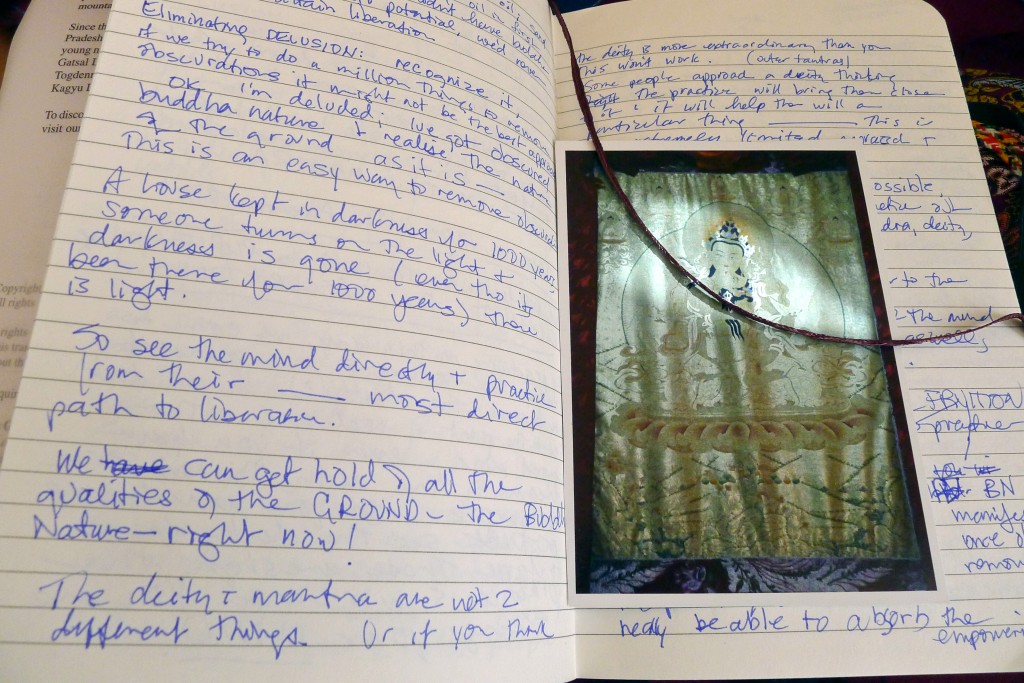 mounta
Since th
Pradesh
young n
Gatsal I
Togdenr
Kagyu I
To disco
visit our
Copyrigh
ll rights
rights
oil in
potential, we'd never
attain liberation.
Eliminating DELUSION: recognize it
if we try to do a million things to remove
obscurations it might not be the best approach
OK I'm deluded: I've got obscured
buddha nature. I realise the nature
of the ground as it is —
This is an easy way to remove obscurations
A house kept in darkness for 1000 years
someone turns on the light +
darkness is gone (even tho its
been there for 1000 years) then
is light.
So see the mind directly + practice
from their ____ most direct
path to liberation.
We have can get hold of all the
qualities of the GROUND – the Buddha
Nature – right now!
The deity + mantra are not 2
different things. Or if you think
the deity is more extraordinary than you
this won't work. (outer tantras)
Some people approach a deity thinking
the practice will bring them close
to it; it will help them with a
particular thing ____ This is
extremely limited
ossible,
dra, deity,
r to the
the mind
as well,
FRUITION
practice
BN
manifes
once o
remov
really be able to absorb the
empower